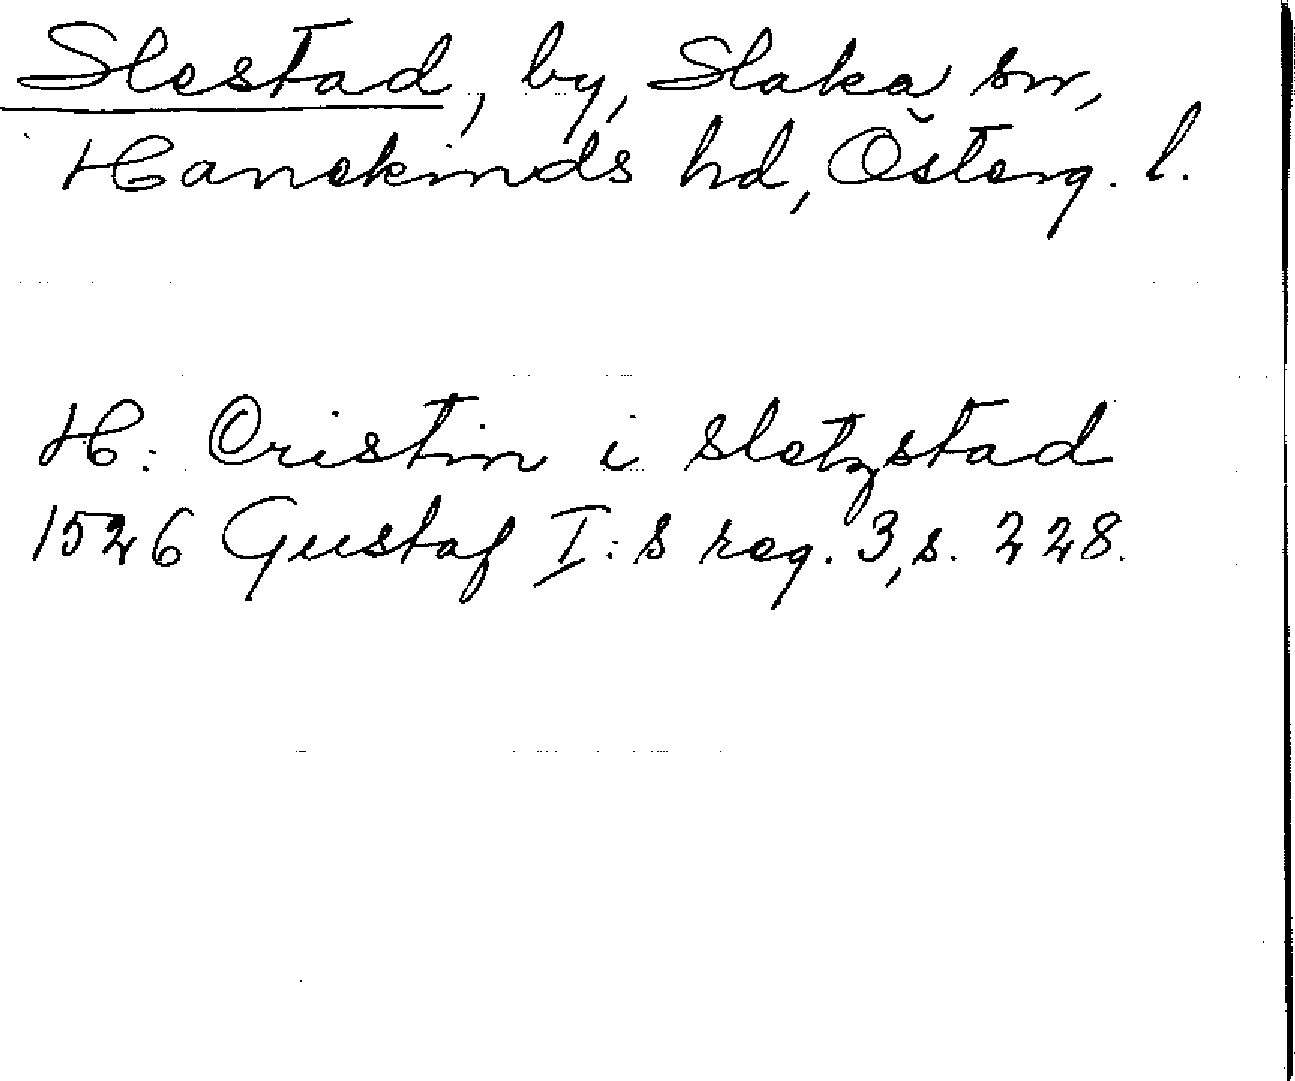 Slestad, by, Slaka sn,
Hanekinds hd, Österg. l.
H: Cristin i Sletzstad
1526 Gustaf I:s reg. 3, s. 228.